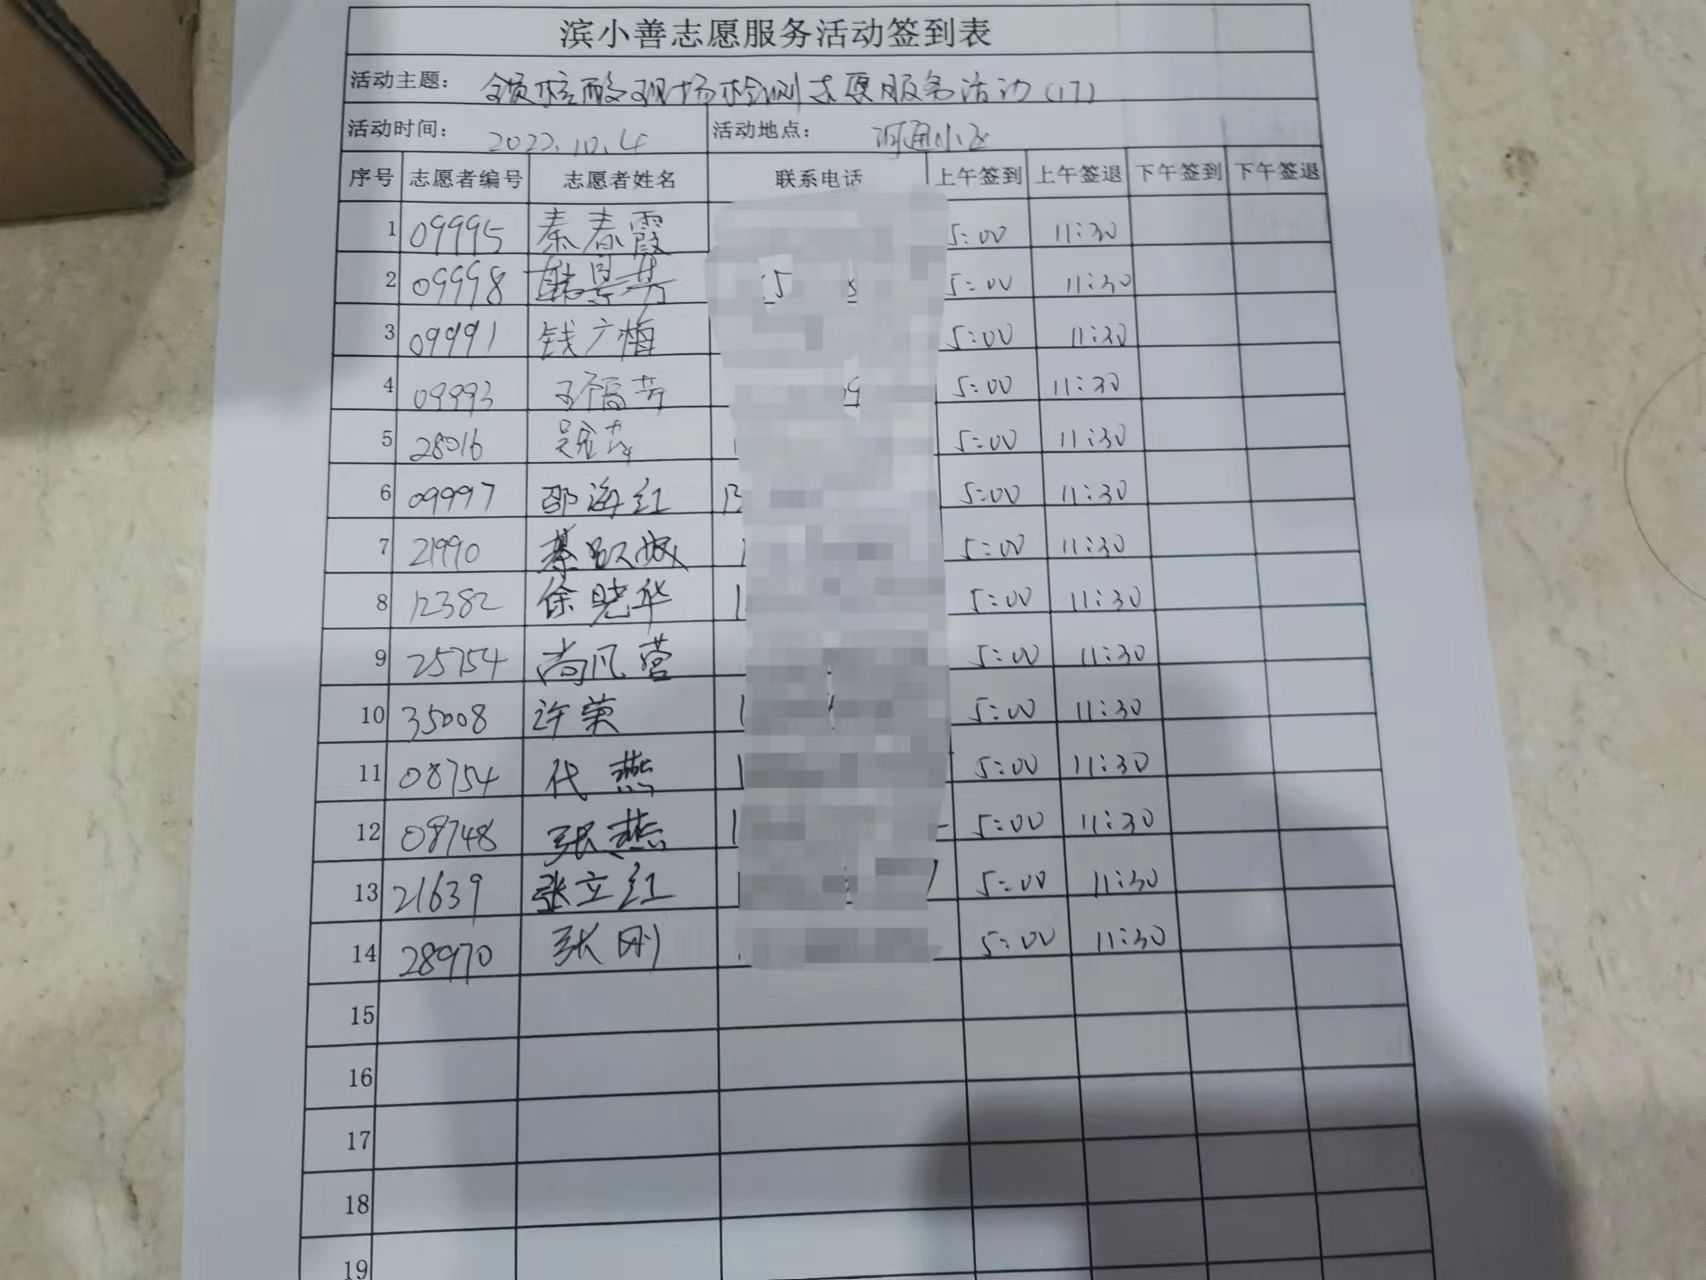 滨小善志愿服务活动签到表
活动主题： 镇核酸现场检测志愿服务活动（17）
活动时间： 2022.10.4 活动地点： 河通小区
序号 志愿者编号 志愿者姓名 联系电话 上午签到 上午签退 下午签到 下午签退
1 09995 秦春霞 5:00 11:30
2 09998 5:00 11:30
3 09991 钱广梅 5:00 11:30
4 09993 王福芳 5:00 11:30
5 28016 5:00 11:30
6 09997 邵海红 13 5:00 11:30
7 21990 5:00 11:30
8 12382 徐晓华 1 5:00 11:30
9 25754 尚凡营 5:00 11:30
10 35008 许荣 1 5:00 11:30
11 08754 代燕 1 5:00 11:30
12 08748 张燕 1 5:00 11:30
13 21639 张立红 1 5:00 11:30
14 28970 张刚 5:00 11:30
15
16
17
18
19